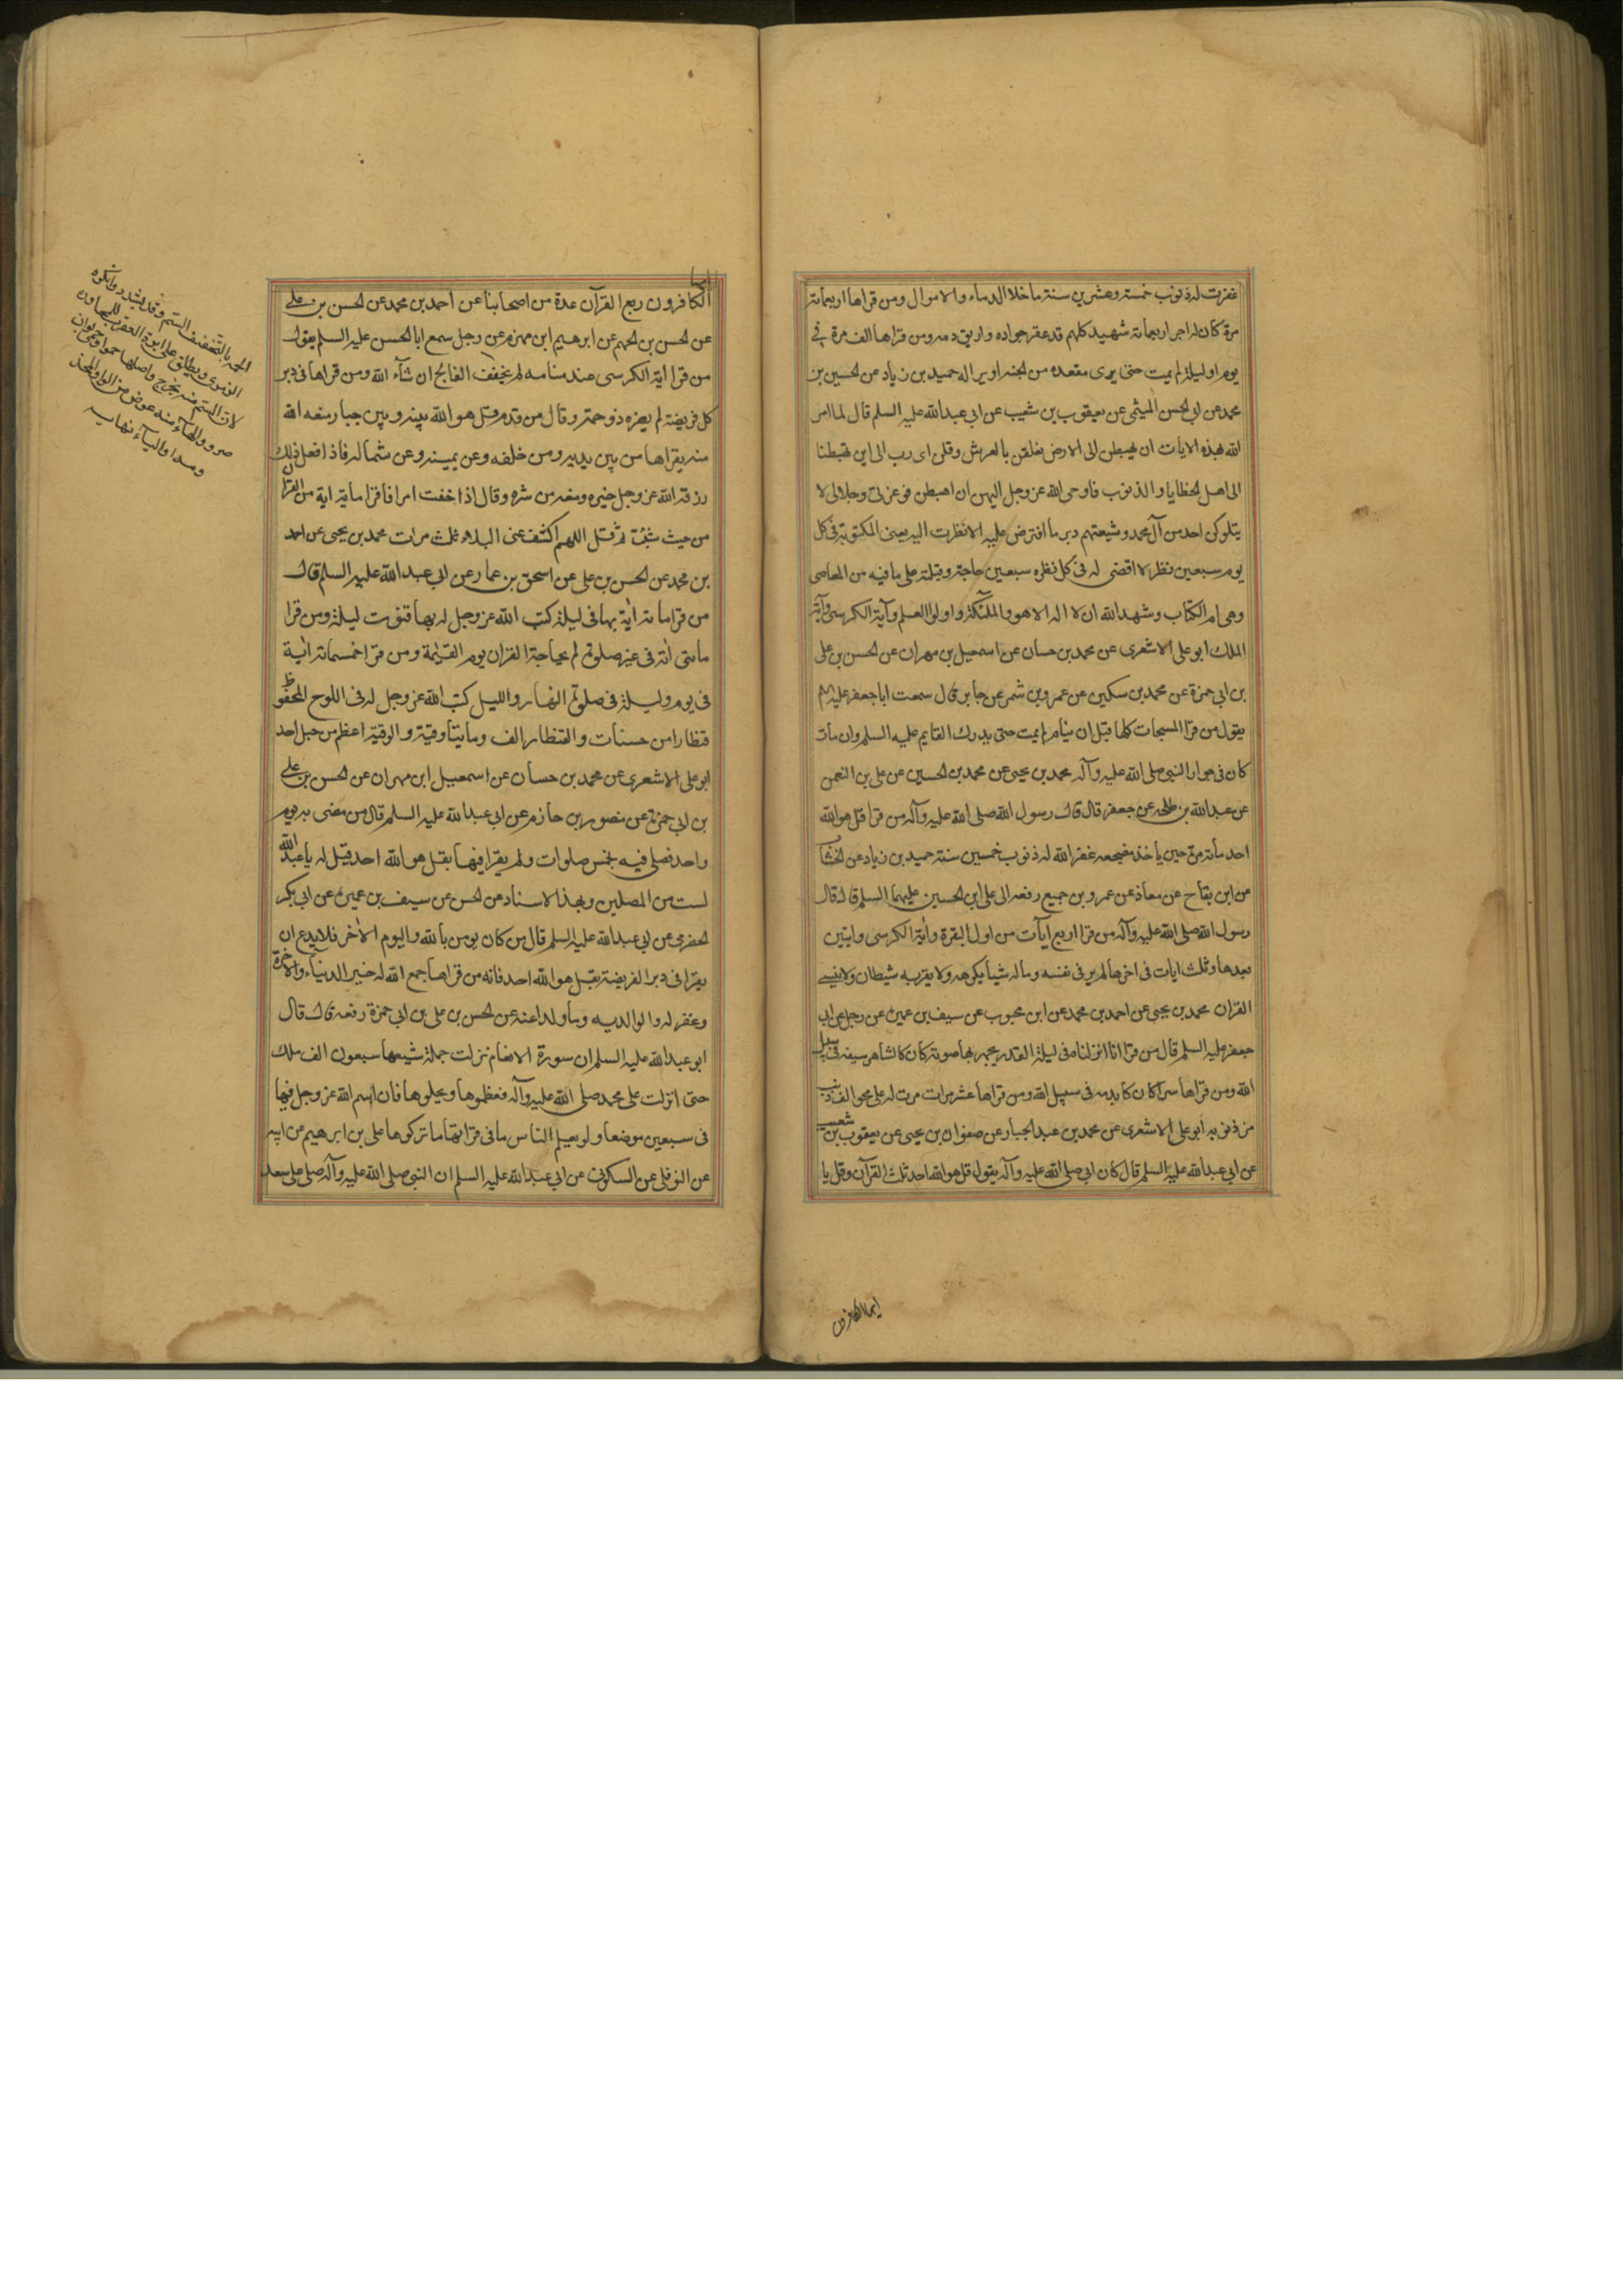 غفرت له ذنوب خمسة وعشرين سنة ما خلا الدماء والاموال ومن قراها اربعمائة
مرة كان له اجر اربعمائة شهيد كلهم قد عقر جواده واريق دمه ومن قراها الف مرة في
يوم او ليلة لم يمت حتى يرى مقعده من الجنة او يرا له حميد بن زياد عن الحسين بن
محمد عن ابي الحسن الميثمي عن يعقوب بن شعيب عن ابي عبد الله عليه السلم قال لما امر
الله بهذه الايات ان يهبطن الى الارض تعلقن بالعرش وقلن اى رب الى اين تهبطنا
الى اهل الخطايا والذنوب فاوحى الله عز وجل اليهن ان اهبطن فو عزتى وجلالى لا
يتلوكن احد من آل محمد وشيعتهم دبر ما افترض عليه الا نظرت اليه بعينى المكنونة فى كل
يوم سبعين نظرة اقضى له فى كل نظرة سبعين حاجة وقبلته على ما فيه من المعاصى
وهى ام الكتاب وشهد الله ان لا اله الا هو والملئكة واولوا العلم وآية الكرسى وآية
الملك ابو على الاشعرى عن محمد بن حسان عن اسمعيل بن مهران عن الحسن بن على
بن ابى حمزة عن محمد بن سكين عن عمرو بن شمر عن جابر قال سمعت ابا جعفر عليه م
يقول من قرا المسبحات كلها قبل ان ينام لم يمت حتى يدرك القايم عليه السلم وان مات
كان فى جوار النبى صلى الله عليه وآله محمد بن يحيى عن محمد بن الحسين عن على بن النعمن
عن عبد الله بن طلحه عن جعفر قال قال رسول الله صلى الله عليه وآله من قرا قل هو الله
احد مائة مرة حين ياخذ مضجعه غفر الله له ذنوب خمسين سنة حميد بن زياد عن الخشاب
عن ابن بقاح عن معاذ عن عمرو بن جميع رفعه الى على ابن الحسين عليهما السلم قال قال
رسول الله صلى الله عليه وآله من قرا اربع آيات من اول البقرة وآية الكرسى وايتين
بعدها وثلث ايات فى اخرها لم ير فى نفسه وماله شيأ يكرهه ولا يقربه شيطان ولا ينسى
القران محمد بن يحيى عن احمد بن محمد عن ابن محبوب عن سيف بن عميرة عن رجل عن ابى
جعفر عليه السلم قال من قرا انا انزلناه فى ليلة القدر يجهر بها صوته كان كالشاهر سيفه فى سبيل
الله ومن قراها سرا كان كا بدمه فى سبيل الله ومن قراها عشر مرات مرت له على محو الف ذنب
من ذنوبه ابو على الاشعرى عن محمد بن عبد الجبار عن صفوان بن يحيى عن يعقوب بن شعيب
عن ابى عبد الله عليه السلم قال كان ابى صلى الله عليه وآله يقول قل هو الله احد ثلث القرآن وقل يا
ايها الكافرون
ايها
الكافرون ربع القرآن عدة من اصحابنا عن احمد بن محمد عن الحسن بن على
عن الحسن بن الجهم عن ابرهيم ابن مهزم عن رجل سمع ابا الحسن عليه السلم يقول
من قرا اية الكرسى عند منامه لم يخفف الفالج ان شآء الله ومن قراها فى دبر
كل فريضة لم يضره ذو حمة وقال من قدم قل هو الله بينه وبين جبار منعه الله
منه يقراها من بين يديه ومن خلفه وعن يمينه وعن شماله فاذا فعل ذلك
رزقه الله عز وجل خيره ومنعه من شره وقال اذا خفت امرا فاقرا مائة اية من القران
من حيث شئت ثم قل اللهم اكشف عنى البلاء ثلث مرات محمد بن يحيى عن احمد
بن محمد عن الحسن بن على عن اسحق بن عمار عن ابى عبد الله عليه السلم قال
من قرا مائة اية بها فى ليلة كتب الله عز وجل له بها قنوت ليلة ومن قرا
مائتى اية فى غير صلوة لم يحاجه القران يوم القيمة ومن قرا خمسمائة اية
فى يوم وليلة فى صلوة النهار والليل كتب الله عز وجل له فى اللوح المحفوظ
قنطارا من حسنات والقنطار الف ومايتا وقية والوقية اعظم من جبل احد
ابو على الاشعرى عن محمد بن حسان عن اسمعيل ابن مهران عن الحسن بن على
بن ابى حمزة عن منصور بن حازم عن ابى عبد الله عليه السلم قال من مضى به يوم
واحد فصلى فيه بخمس صلوات ولم يقرا فيها بقل هو الله احد قيل له يا عبد الله
لست من المصلين وبهذا الاسناد عن الحسن عن سيف بن عميرة عن ابى بكر
الحضرمى عن ابى عبد الله عليه السلم قال من كان يومن بالله واليوم الآخر فلا يدع ان
يقرا فى دبر الفريضة بقل هو الله احد فانه من قراها جمع الله له خير الدنيا والاخرة
وغفر له والوالديه وما ولدا عنه عن الحسن بن على بن ابى حمزة رفعه قال قال
ابو عبد الله عليه السلم ان سورة الانعام نزلت جملة شيعها سبعون الف ملك
حتى انزلت على محمد صلى الله عليه وآله فعظموها وبجلوها فان اسم الله عز وجل فيها
فى سبعين موضعا ولو يعلم الناس ما فى قراتها ما تركوها على بن ابرهيم عن ابيه
عن النوفلى عن السكونى عن ابى عبد الله عليه السلم ان النبى صلى الله عليه وآله صلى على سعد
الحمة بالتخفيف السم وقد يشدد وانكره
الازهرى ويطلق على ابرة العقرب للمجاورة
لان السم منه يخرج واصلها حموا وحمى بوزن
صرد والهاء فيه عوض من الواو المحذ
وفة او الياء نهايه